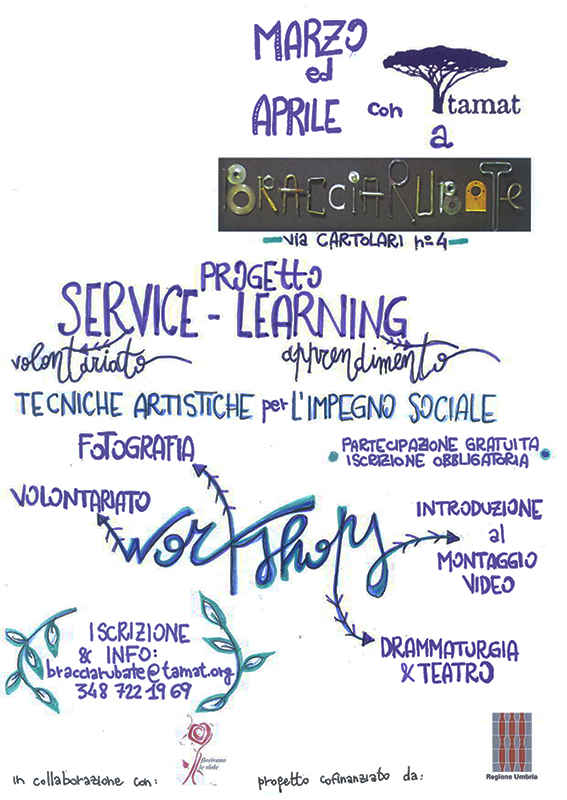 MARZO
ed
APRILE con tamat
a
BRACCIARUBATE
via CARTOLARI n°4
PROGETTO
SERVICE - LEARNING
volontariato apprendimento
TECNICHE ARTISTICHE per L'IMPEGNO SOCIALE
FOTOGRAFIA
PARTECIPAZIONE GRATUITA
ISCRIZIONE OBBLIGATORIA
VOLONTARIATO
workshops
INTRODUZIONE
al
MONTAGGIO
VIDEO
DRAMMATURGIA
& TEATRO
ISCRIZIONE
& INFO:
bracciarubate@tamat.org
348 722 19 69
in collaborazione con:
fiorivano
le viole
progetto cofinanziato da:
Regione Umbria